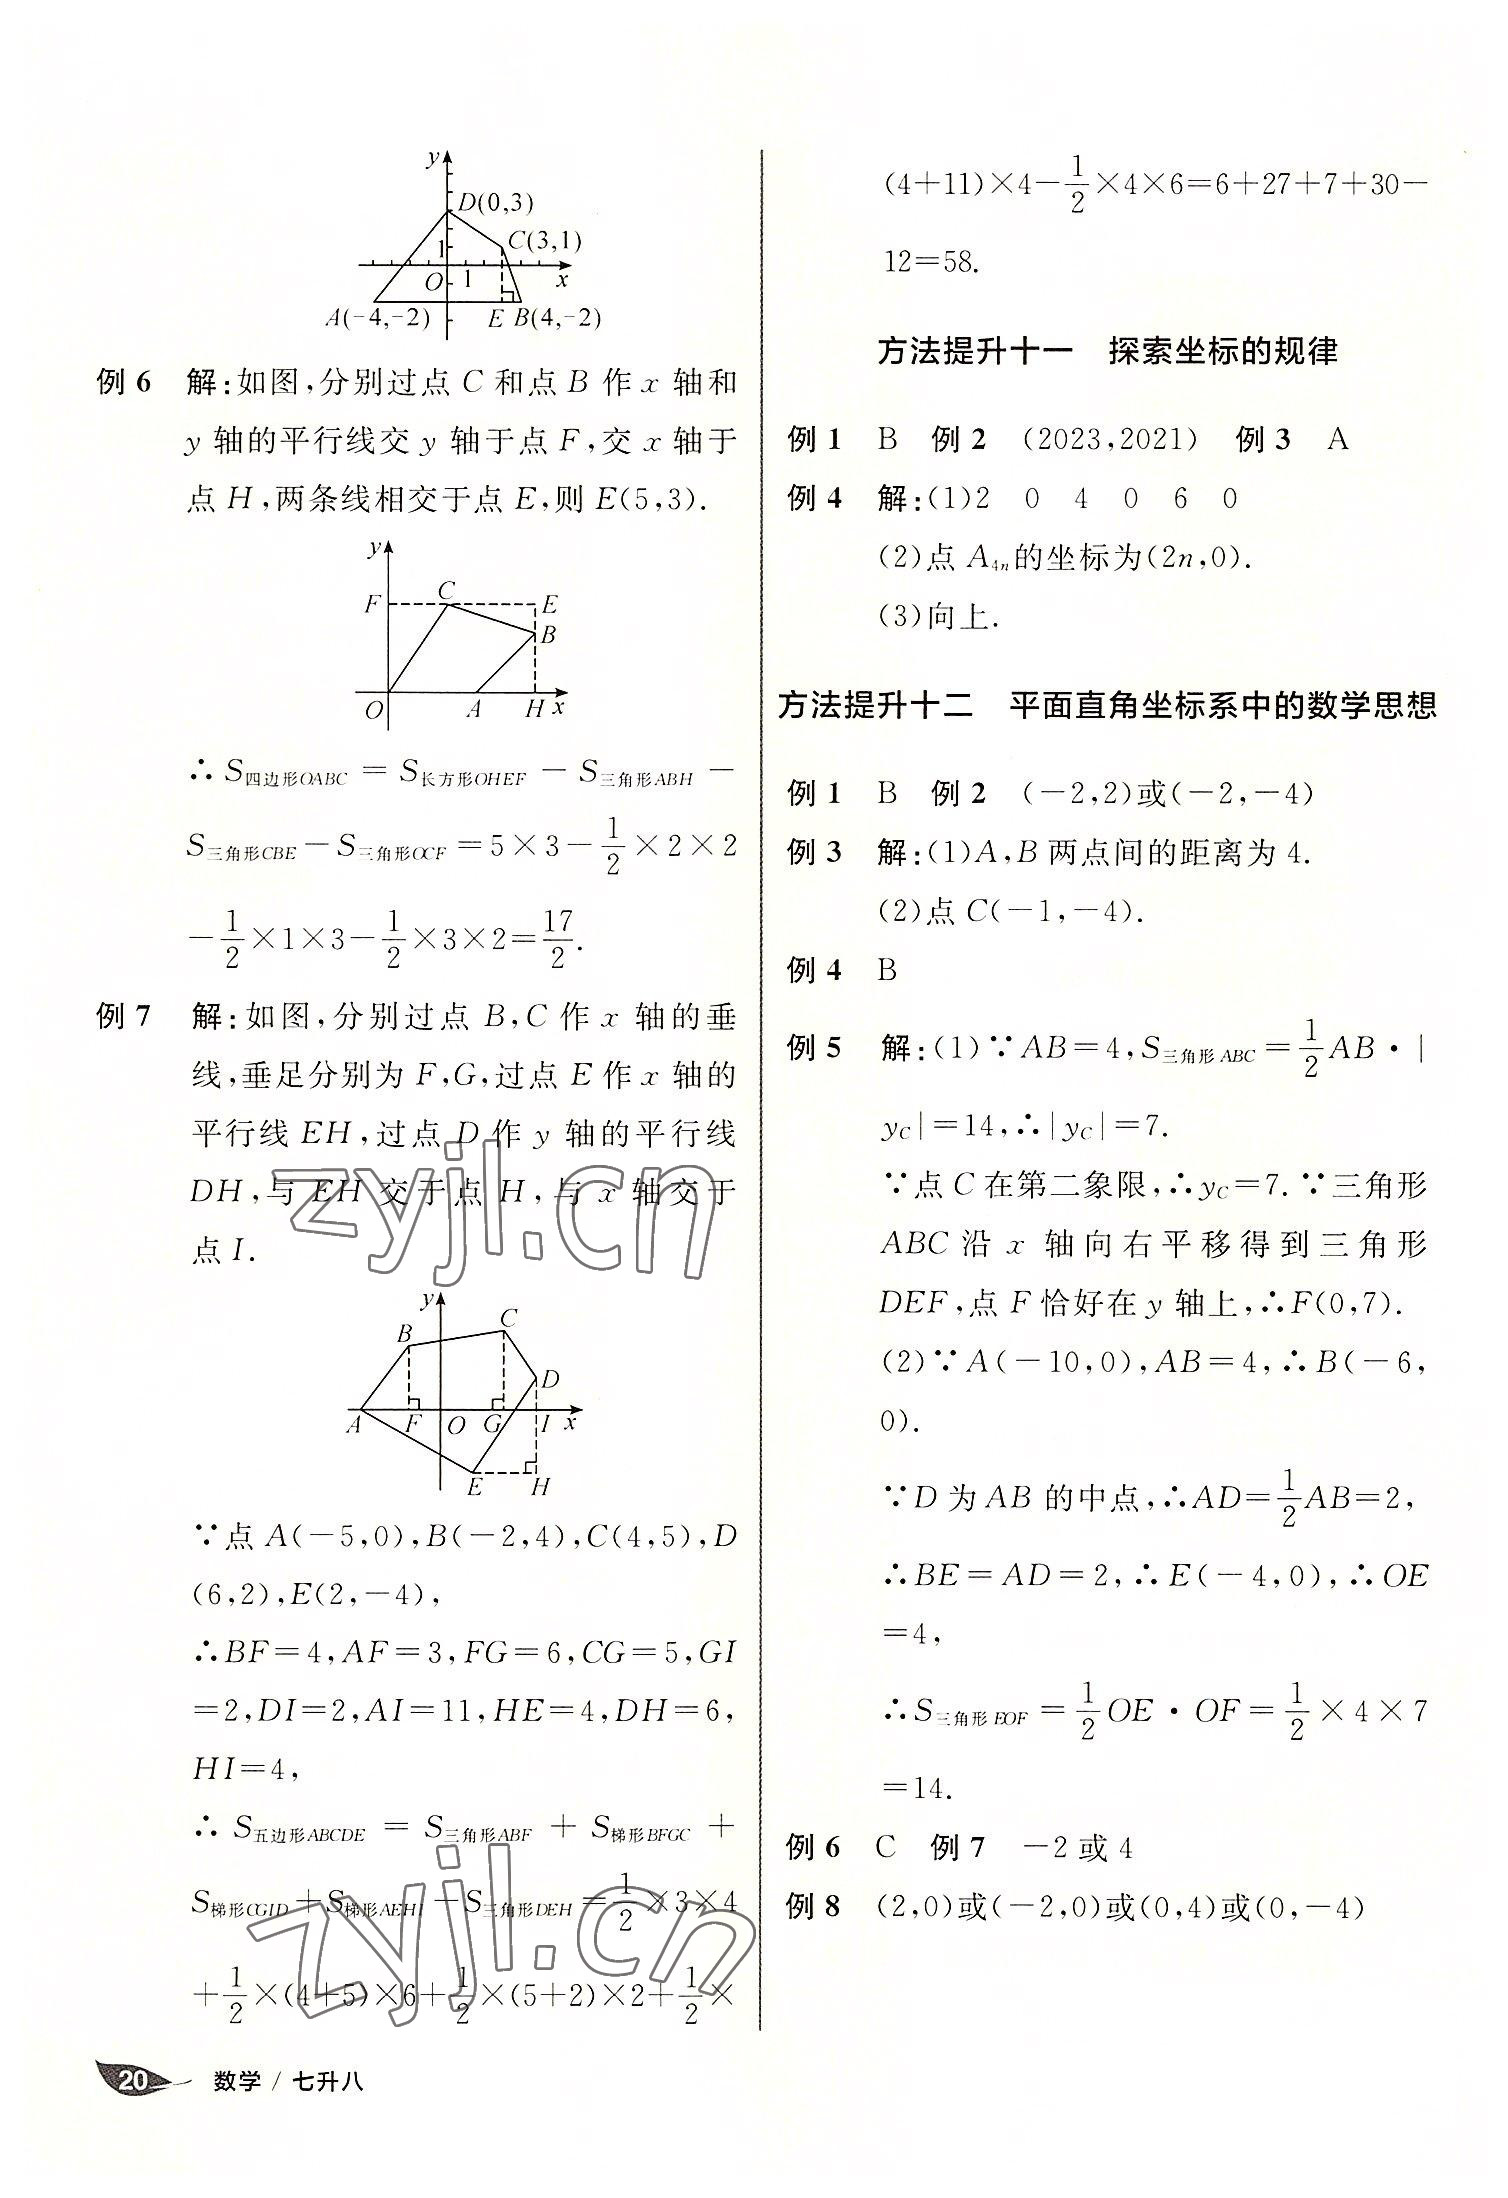 y
D(0,3)
C(3,1)
1
O 1 x
A(-4,-2) E B(4,-2)
例 6 解:如图,分别过点 C 和点 B 作 x 轴和
y 轴的平行线交 y 轴于点 F,交 x 轴于
点 H,两条线相交于点 E,则 E(5,3).
y
F C E
B
O A H x
∴ S四边形OABC = S长方形OHEF − S三角形ABH −
S三角形CBE − S三角形OCF = 5×3 − 1/2 ×2×2
− 1/2 ×1×3 − 1/2 ×3×2 = 17/2.
例 7 解:如图,分别过点 B,C 作 x 轴的垂
线,垂足分别为 F,G,过点 E 作 x 轴的
平行线 EH,过点 D 作 y 轴的平行线
DH,与 EH 交于点 H,与 x 轴交于
点 I.
y
B C
D
A F O G I x
E H
∵点 A(−5,0),B(−2,4),C(4,5),D
(6,2),E(2,−4),
∴BF=4,AF=3,FG=6,CG=5,GI
=2,DI=2,AI=11,HE=4,DH=6,
HI=4,
∴ S五边形ABCDE = S三角形ABF + S梯形BFGC +
S梯形CGID + S梯形AEHI − S三角形DEH = 1/2 ×3×4
+ 1/2 ×(4+5)×6 + 1/2 ×(5+2)×2 + 1/2 ×
20 数学 / 七升八
(4+11)×4 − 1/2 ×4×6=6+27+7+30−
12=58.
方法提升十一 探索坐标的规律
例 1 B 例 2 (2023,2021) 例 3 A
例 4 解:(1)2 0 4 0 6 0
(2)点 A4n的坐标为(2n,0).
(3)向上.
方法提升十二 平面直角坐标系中的数学思想
例 1 B 例 2 (−2,2)或(−2,−4)
例 3 解:(1)A,B 两点间的距离为 4.
(2)点 C(−1,−4).
例 4 B
例 5 解:(1)∵AB=4,S三角形ABC = 1/2 AB·|
yC|=14,∴|yC|=7.
∵点 C 在第二象限,∴yC=7.∵三角形
ABC 沿 x 轴向右平移得到三角形
DEF,点 F 恰好在 y 轴上,∴F(0,7).
(2)∵A(−10,0),AB=4,∴B(−6,
0).
∵D 为 AB 的中点,∴AD= 1/2 AB=2,
∴BE=AD=2,∴E(−4,0),∴OE
=4,
∴S三角形EOF = 1/2 OE·OF = 1/2 ×4×7
=14.
例 6 C 例 7 −2 或 4
例 8 (2,0)或(−2,0)或(0,4)或(0,−4)
zyjl.cn
zyjl.cn